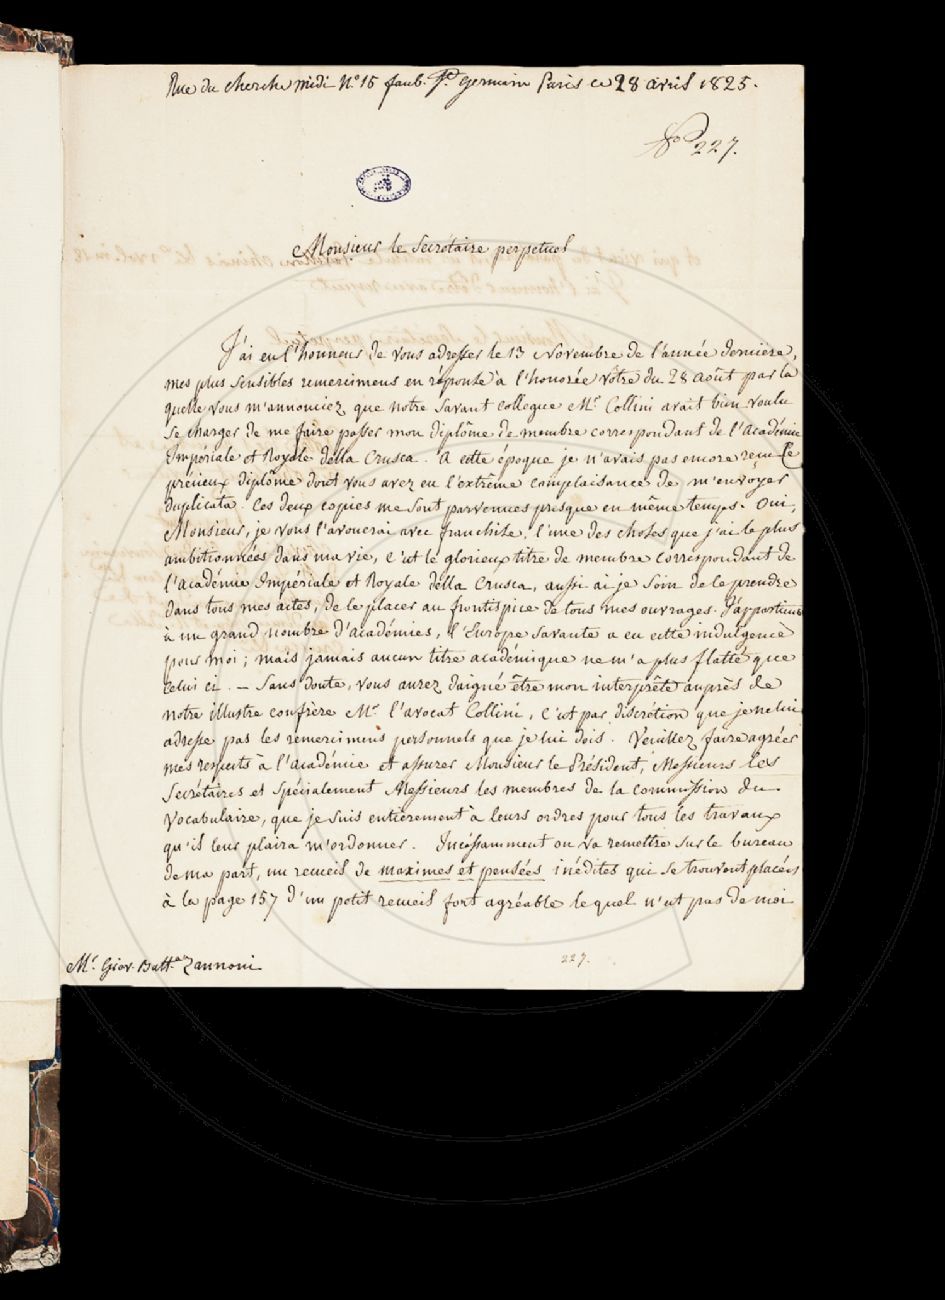 Rue du cherche midi N.º 15 faub. St. germain Paris ce 28 avril 1825.
Nº 227.
Monsieur le Secrétaire perpetuel
J'ai eu l'honneur de vous adresser le 13 Novembre de l'année derniere,
mes plus sensibles remercimens en réponse à l'honorée vôtre du 28 août par la
quelle vous m'annonciez que notre savant collegue Mr Collini avait bien voulu
se charger de me faire passer mon diplôme de membre correspondant de l'académie
Impériale et Royale della Crusca. A cette époque je n'avais pas encore reçu le
précieux diplôme dont vous avez eu l'extrême complaisance de m'envoyer
duplicata. Ces deux copies me sont parvenues presque en même temps. Oui,
Monsieur, je vous l'avouerai avec franchise, l'une des choses que j'ai le plus
ambitionnées dans ma vie, c'est le glorieux titre de membre correspondant de
l'académie Impériale et Royale della Crusca, aussi ai je soin de le prendre
dans tous mes actes, de le placer au frontispice de tous mes ouvrages. J'appartiens
à un grand nombre d'académies, l'Europe savante a eu cette indulgence
pour moi ; mais jamais aucun titre académique ne m'a plus flatté que
celui ci. — Sans doute, vous aurez daigné être mon interprête auprès de
notre illustre confrère Mr l'avocat Collini, c'est par discrétion que je ne lui
adresse pas les remercimens personnels que je lui dois. Veuillez faire agréer
mes respects à l'académie et assurer Monsieur le Président, Messieurs les
Secrétaires et spécialement Messieurs les membres de la commission du
Vocabulaire, que je suis entièrement à leurs ordres pour tous les travaux
qu'il leur plaira m'ordonner. Incéssamment on va remettre sur le bureau
de ma part, un recueil de maximes et pensées inédites qui se trouvent placées
à la page 157 d'un petit recueil fort agréable lequel n'est pas de moi
Mr. Giov. Batt.a Zannoni
227.